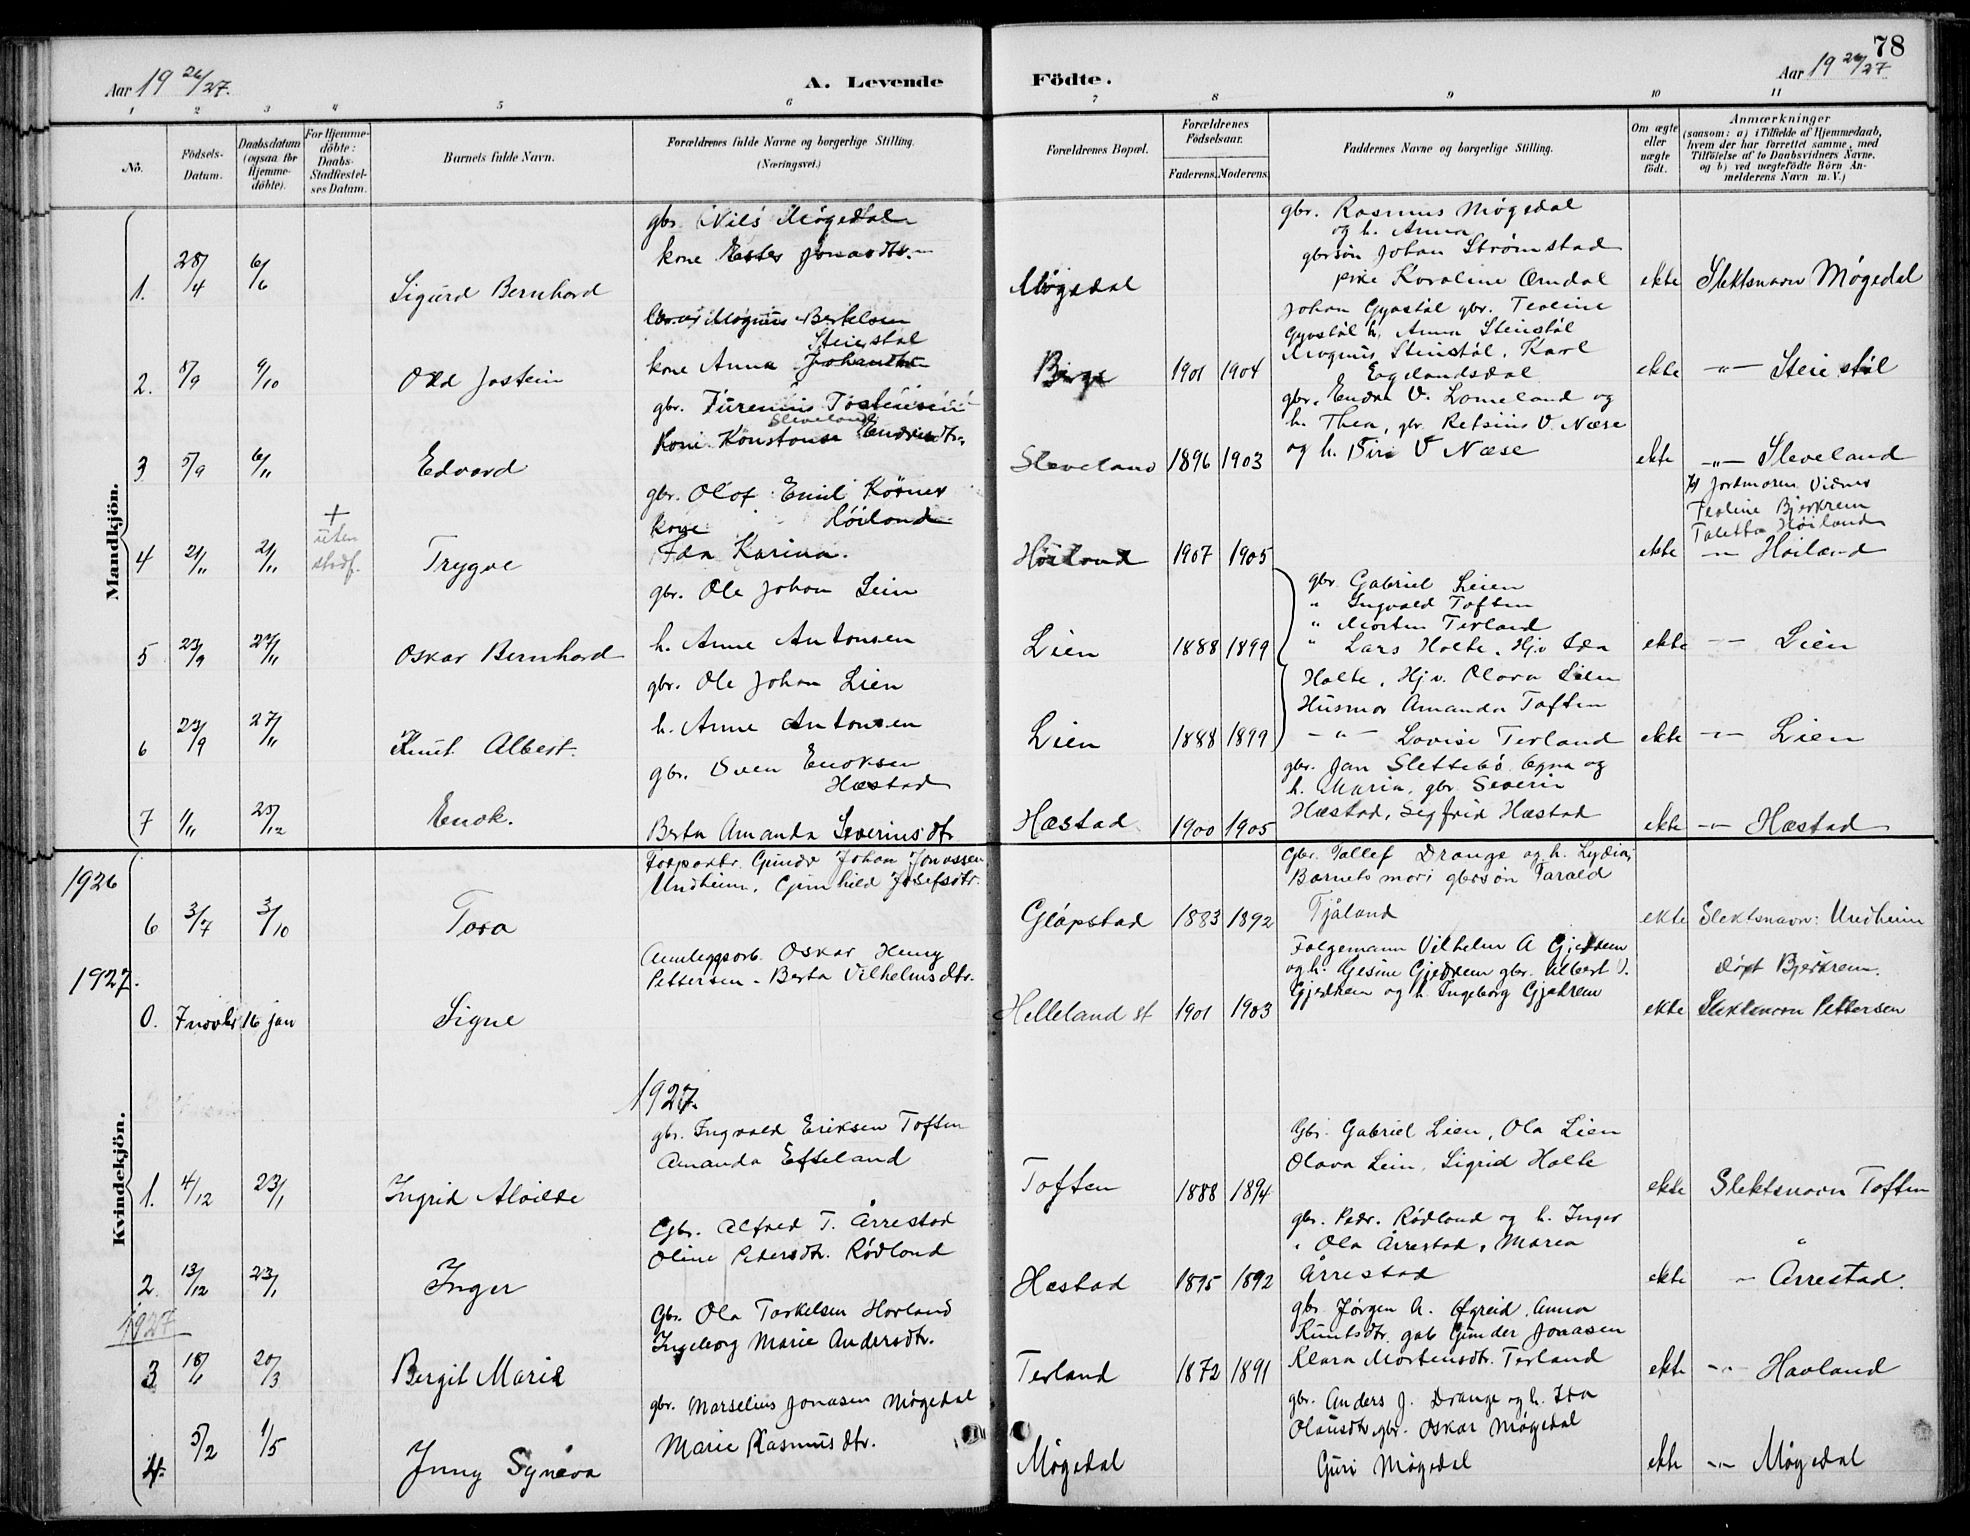 78
Aar 19 26/27.
A. Levende
Födte.
Aar 19 26/27
1 2 3 4 5 6 7 8 9 10 11
No.
Födsels-
Datum.
Daabsdatum
(ogsaa for
Hjemme-
döbte).
For Hjemme-
döbte:
Daabs-
Stadfæstel-
ses Datum.
Barnets fulde Navn.
Forældrenes fulde Navne og borgerlige Stilling.
(Næringsvei.)
Forældrenes Bopæl.
Forældrenes
Födselsaar.
Faderens. Moderens.
Faddernes Navne og borgerlige Stilling.
Om ægte
eller
uægte
födt.
Anmærkninger
(saasom: a) i Tilfælde af Hjemmedaab,
hvem der har forrettet samme, med
Tilföielse af to Daabsvidners Navne,
og b) ved uægtefödte Börn An-
melderens Navn m. V.)
Mandkjön.
gbr. Nils Møgedal
kone Ester Jonasdtr.
1. 28/4 6/6 Sigurd Bernhard
Møgedal
gbr. Rasmus Møgedal
og h. Anna
gbrsön Johan Strömstad
pike Karoline Ørndal
ekte Slektsnavn Møgedal
Magnus Bertelsen
Steinstøl
kone Anna Johansdtr
2. 5/9 9/10 Odd Jostein
Birge 1901 1904
Johan Gyastøl gbr. Teoline
Gyastøl h. Anna Steinstøl
Magnus Steinstøl, Karl
Eogelandsdal
ekte -"- Steinstøl
gbr. Furenius Tosteinsen
Sleveland
Kone Konstanse Endresdtr.
3 5/9 6/11 Edvard
Sleveland 1896 1903
gbr. Endre V. Lomeland og
h. Thea, gbr. Retsius V. Næse
og h. Siri V Næse
ekte -"- Sleveland
gbr. Olof Emil Körner
Höiland
kone
Ida Karina.
4 2/11 2/11 + uten stadf. Trygve
Höiland 1907 1905
Jordmoren Vidner
Teoline Bjerkrem
Taletta Höiland
ekte -"- Höiland
gbr. Ole Johan Lein
h. Anne Antonsen
5 23/9 27/11 Oskar Bernhard
Lien 1888 1899
gbr. Gabriel Leien
" Ingvald Toften
" Morten Terland
" Lars Holte, Hj.v Ida
ekte -"- Lien
gbr. Ole Johan Lien
h. Anne Antonsen
6 23/9 27/11 Knut Albert.
Lien 1888 1899
Holte, Hj.v. Olava Lien
Husmor Amanda Toften
-"- Lovise Terland
ekte -"- Lien
gbr. Sven Enoksen
Hæstad
Berta Amanda Severinsdtr
7 1/11 25/12 Enok.
Hæstad 1900 1905
gbr. Jan Slettebö Egna og
h. Maria, gbr. Severin
Hæstad, Sigfrid Hæstad
ekte -"- Hæstad
1926
Kvindekjön.
Forpaktr. Gunder Johan Jonassen
Undheim, Gunhild Josefsdtr.
6 3/7 3/10 Tora
Gläpstad 1883 1892
Gbr. Tallef Drange og h. Lydia,
Barnets mor, gbrsön Tarald
Tjåland
ekte Slektsnavn: Undheim
1927.
Anleggsarb. Oskar Henry
Pettersen - Berta Vilhelmsdtr.
0. 7 novbr 16 jan Signe
Helleland st 1901 1903
Folgemann Vilhelm A Gjedrem
og h. Gesine Gjedrem gbr. Albert V.
Gjedrem og h. Ingeborg Gjedrem
döpt Bjerkrem.
ekte Slektsnavn Pettersen
1927.
gbr. Ingvald Eriksen Toften
Amanda Efteland
1. 4/12 23/1 Ingrid Alvilde
Toften 1888 1894
Gbr. Gabriel Lien, Ola Lien
Olava Lein, Sigrid Holte
ekte Slektsnavn Toften
Gbr. Alfred T. Årrestad
Oline Petersdtr. Rödland
2. 13/12 23/1 Inger
Hæstad 1895 1892
gbr. Pedr. Rödland og h. Inger
" Ola Årrestad, Maria
Årrestad
ekte " Årrestad.
1927
Gbr. Ola Torkelsen Havland
Ingeborg Marie Andersdtr.
3 18/1 20/3 Bergit Marie
Terland 1872 1891
gbr Jørgen A. Øgreid, Anna
Knutsdtr. gab Gunder Jonasen
Klara Mortensdtr. Terland
ekte -"- Havland
gbr. Marselius Jonasen Møgedal
Marie Rasmusdtr.
4. 5/2 1/5 Jenny Synöva
Møgedal
gbr. Anders J. Drange og h. Ida
Olausdtr gbr. Oskar Møgedal
Guri Møgedal
ekte -"- Møgedal